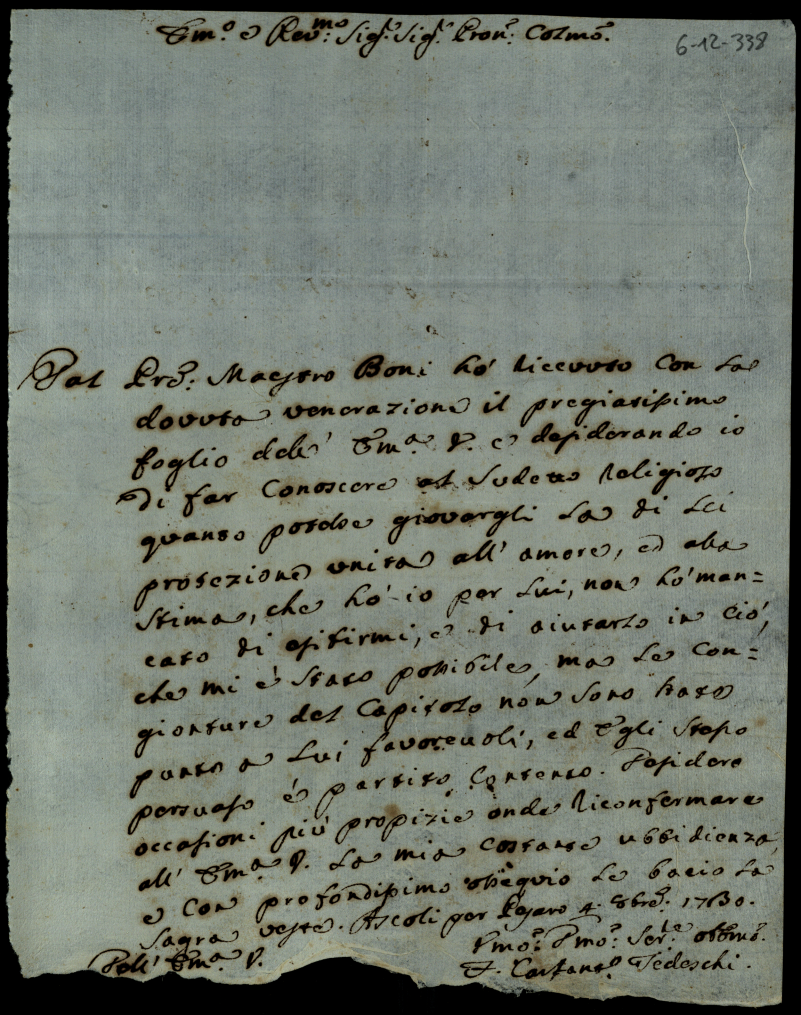 Em.º e Rev.mo Sig.r Sig.r Pron. Colmo.
6-12-338
Dal Pre. Maestro Boni hò riceuuto con la
douuta venerazione il pregiatissimo
foglio dell' Em.a V. e desiderando io
di far conoscere al sudetto Religioso
quanto potesse giovargli la di Lei
protezione unita all' amore, ed alla
stima, che hò io per lui, non hò man=
cato di esibirmi, e di aiutarlo in ciò,
che mi è stato possibile, ma le con=
gionture del Capitolo non sono state
punto a lui favoreuoli, ed Egli stesso
persuaso è partito contento. Desidero
occasioni più propizie onde riconfermare
all' Em.a V. la mia costante ubbidienza,
e con profondissimo ossequio le bacio la
sagra veste. Ascoli per Pesaro 4. 8bre. 1730.
Dell' Em.a V.
Vmo. Dmo. Ser.e obbmo.
F. Tedeschi.